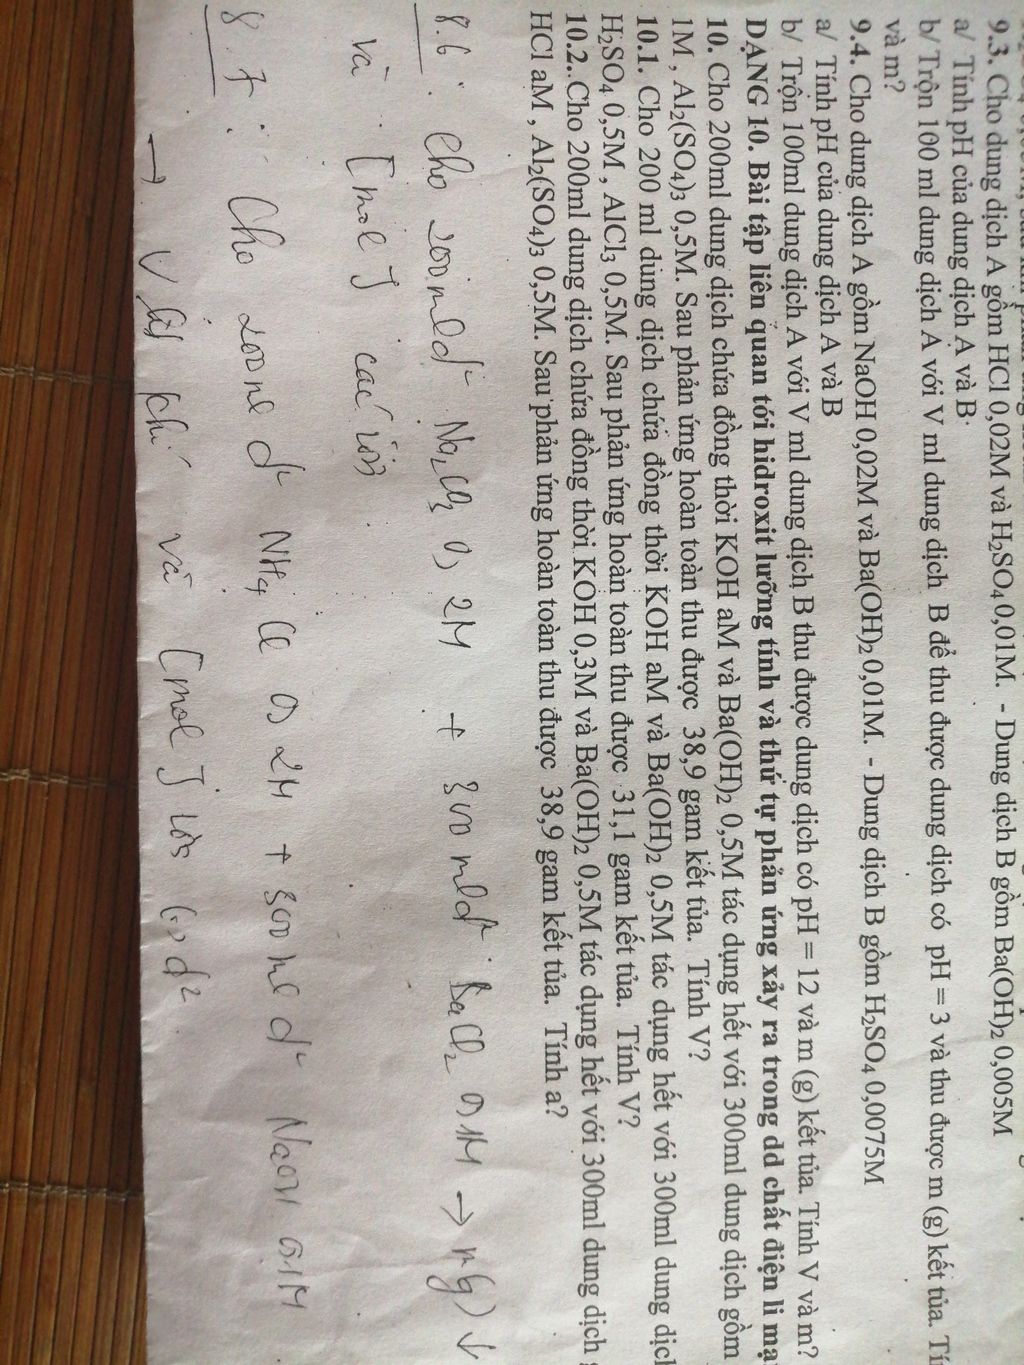 9.3. Cho dung dịch A gồm HCl 0,02M và H₂SO₄ 0,01M. - Dung dịch B gồm Ba(OH)₂ 0,005M
a/ Tính pH của dung dịch A và B
b/ Trộn 100 ml dung dịch A với V ml dung dịch B để thu được dung dịch có pH = 3 và thu được m (g) kết tủa.
và m?
9.4. Cho dung dịch A gồm NaOH 0,02M và Ba(OH)₂ 0,01M. - Dung dịch B gồm H₂SO₄ 0,0075M
a/ Tính pH của dung dịch A và B
b/ Trộn 100ml dung dịch A với V ml dung dịch B thu được dung dịch có pH = 12 và m (g) kết tủa. Tính V và m?
DẠNG 10. Bài tập liên quan tới hidroxit lưỡng tính và thứ tự phản ứng xảy ra trong dd chất điện li
10. Cho 200ml dung dịch chứa đồng thời KOH aM và Ba(OH)₂ 0,5M tác dụng hết với 300ml dung dịch gồm
1M , Al₂(SO₄)₃ 0,5M. Sau phản ứng hoàn toàn thu được 38,9 gam kết tủa. Tính V?
10.1. Cho 200 ml dung dịch chứa đồng thời KOH aM và Ba(OH)₂ 0,5M tác dụng hết với 300ml dung
H₂SO₄ 0,5M , AlCl₃ 0,5M. Sau phản ứng hoàn toàn thu được 31,1 gam kết tủa. Tính V?
10.2.. Cho 200ml dung dịch chứa đồng thời KOH 0,3M và Ba(OH)₂ 0,5M tác dụng hết với 300ml dung dịch
HCl aM , Al₂(SO₄)₃ 0,5M. Sau phản ứng hoàn toàn thu được 38,9 gam kết tủa. Tính a?
8.6 : Cho 200ml d² Na₂CO₃ 0,2M + 300ml d² BaCl₂ 0,1M → m(g) ↓
và [mol] các ion
8.7 : Cho 200ml d² NH₄Cl 0,2M + 300ml d² NaOH 0,1M
→ V lít khí và [mol] ion (.) d²